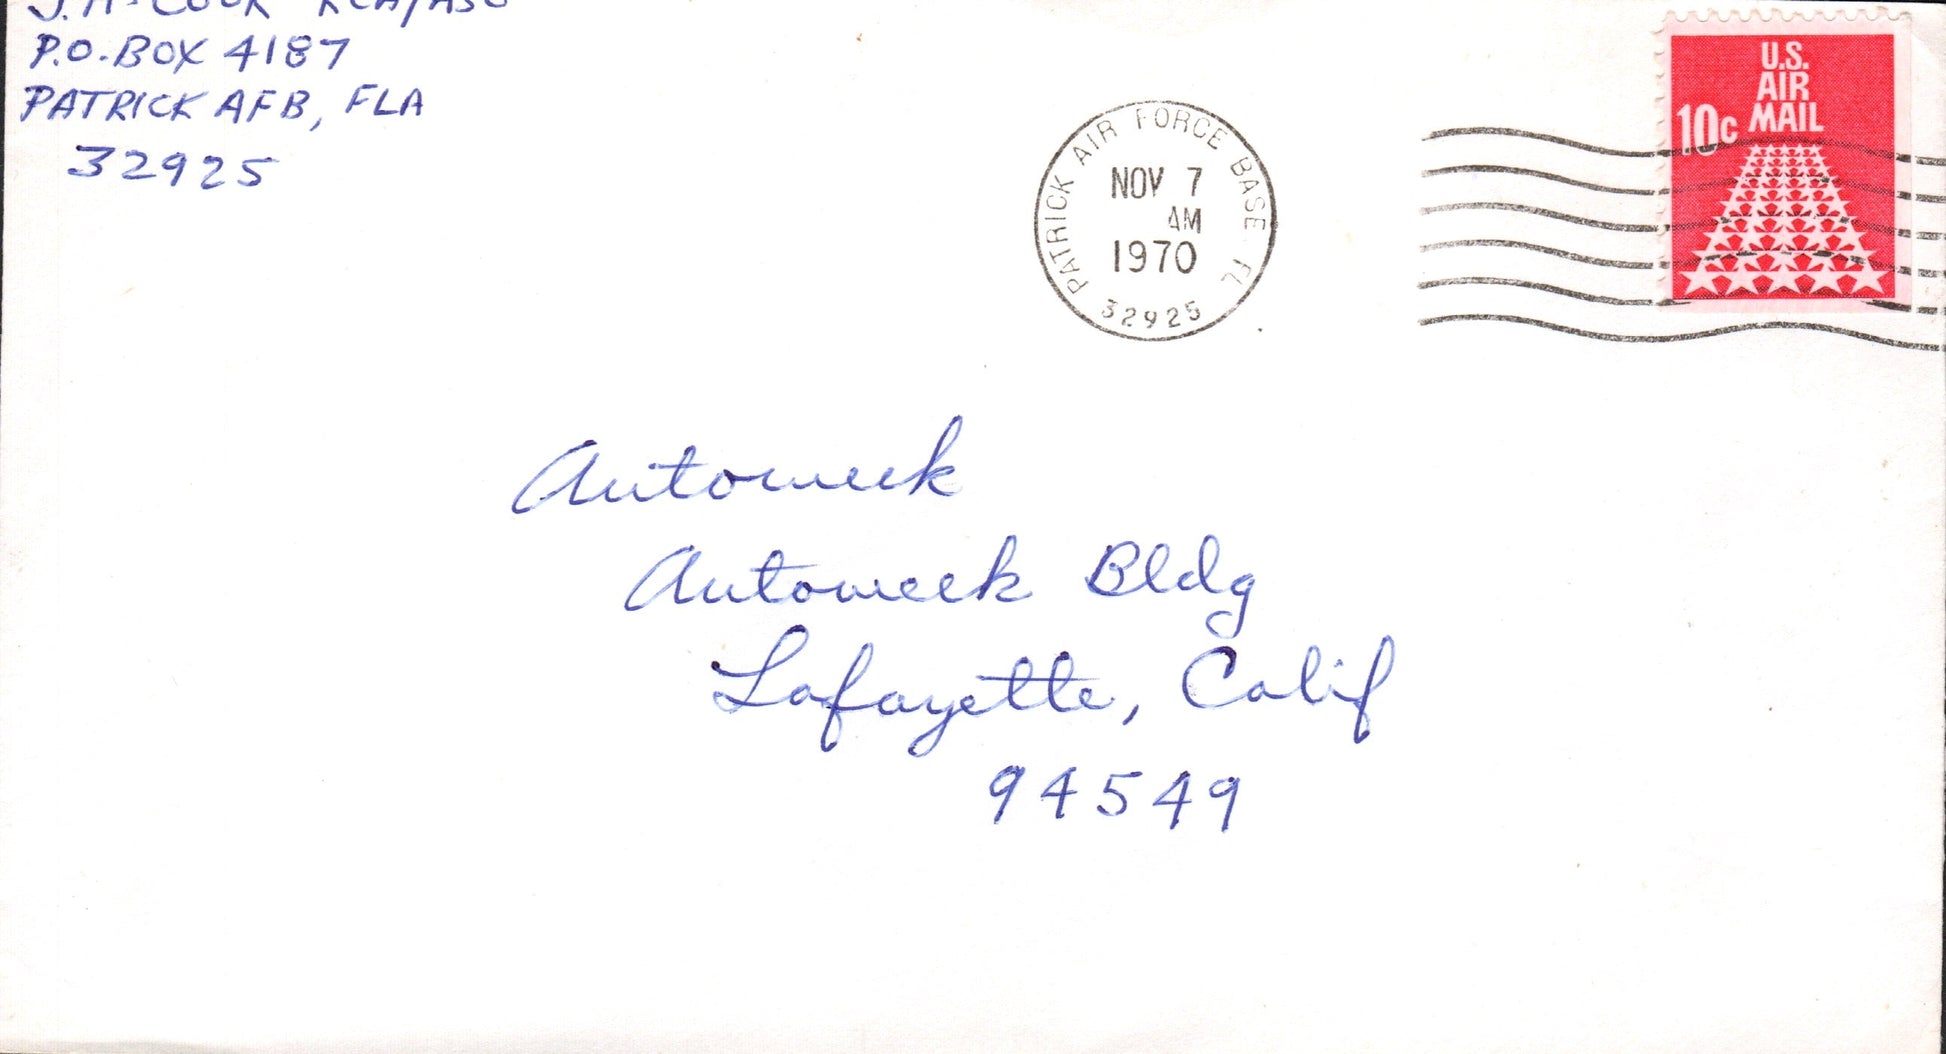 COOK
P.O. BOX 4187
PATRICK AFB, FLA
32925
PATRICK AIR FORCE BASE FL
NOV 7
AM
1970
32925
U.S.
AIR
MAIL
10c
Autoweek
Autoweek Bldg
Lafayette, Calif
94549